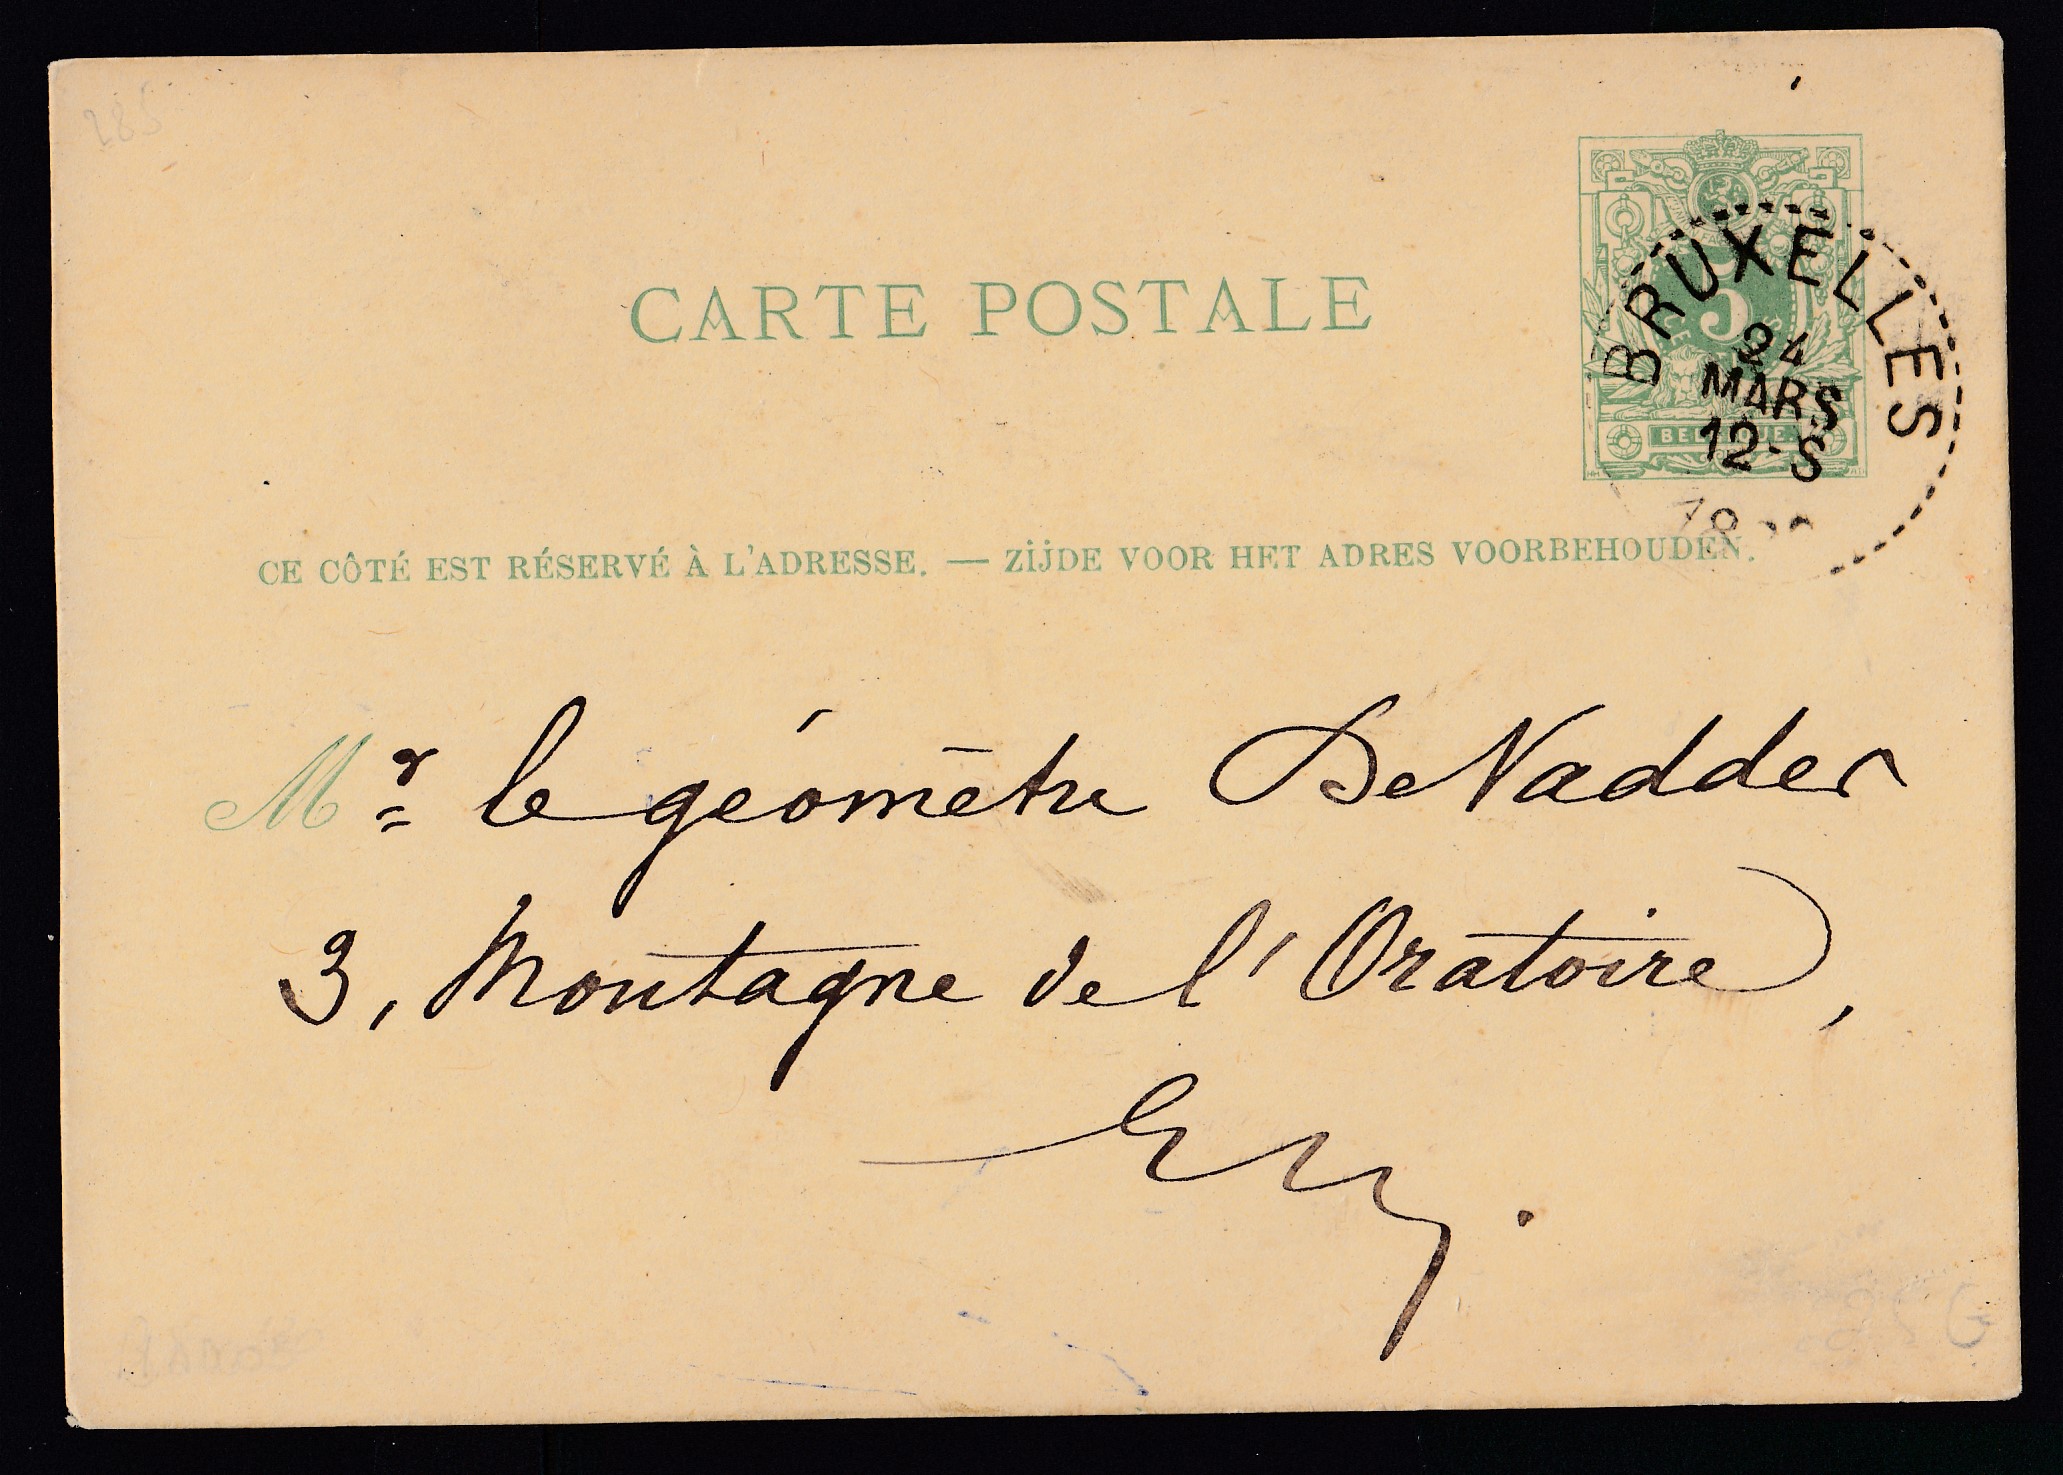 285
CARTE POSTALE
5
BELGIQUE.
BRUXELLES
24
MARS
12-S
CE CÔTÉ EST RÉSERVÉ À L'ADRESSE. — ZIJDE VOOR HET ADRES VOORBEHOUDEN.
Mr le géomètre De Nadder
3, Montagne de l'Oratoire,